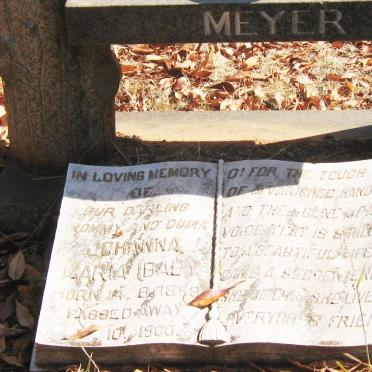 MEYER
IN LOVING MEMORY
OF
OUR DARLING
MOMMY AND OUMA
JOHANNA
MARIA
BORN 14. 6.
PASSED AWAY
10.
O! FOR THE TOUCH
OF A VANISHED HAND
AND THE
VOICE THAT IS STILL
TO A BEAUTIFUL LIFE
CAME A SUDDEN END
SHE DIED AS SHE LIVED
EVERYONE'S FRIEND